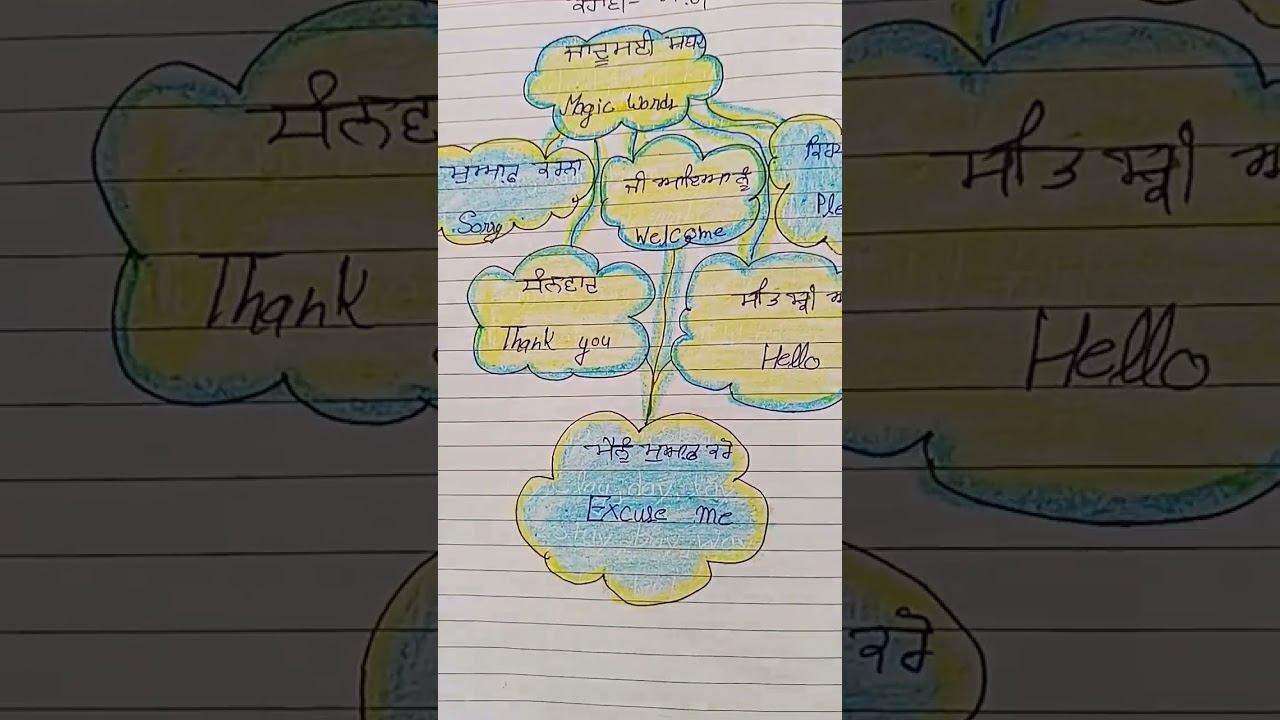 ਜਾਦੂਮਈ ਸਬਦ
Magic Words
ਮੁਆਫ਼ ਕਰਨਾ
Sorry
ਜੀ ਆਇਆ ਨੂੰ
Welcome
Ple
ਧੰਨਵਾਦ
Thank you
ਸਤਿ ਸ਼੍ਰੀ ਅ
Hello
ਮੈਨੂੰ ਮੁਆਫ਼ ਕਰੋ
Excuse me
ਧੰਨਵਾ
Thank
ਸਤਿ ਸ਼੍ਰੀ ਅ
Hello
ਕਰੋ